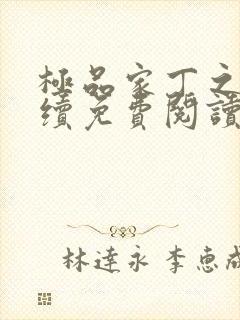 極品家丁之
續免費閱讀
林達永 李惠